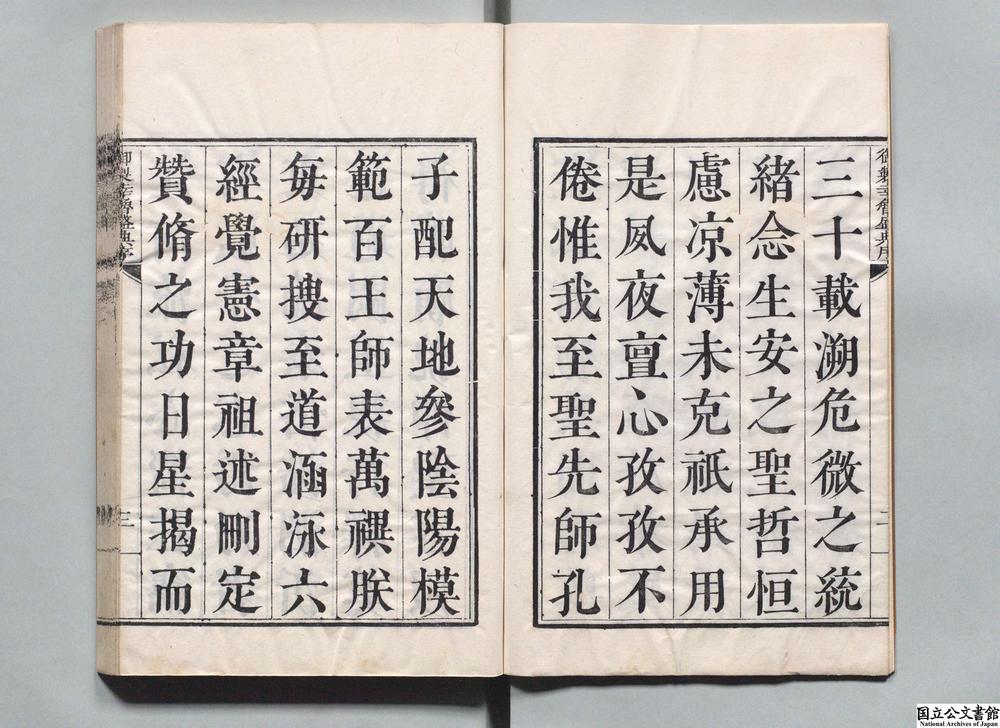 御製幸魯盛典序
三十載溯危微之統
緒念生安之聖哲恒
慮凉薄未克祇承用
是夙夜亶心孜孜不
倦惟我至聖先師孔
二
子配天地參陰陽模
範百王師表萬禩朕
每研搜至道涵泳六
經覺憲章祖述刪定
贊脩之功日星揭而
御製幸魯盛典序
三
国立公文書館
National Archives of Japan